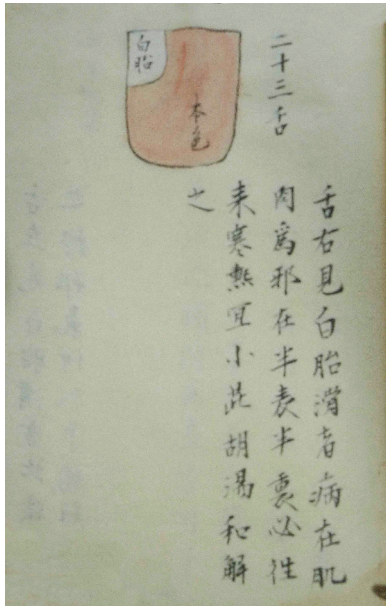 二十三舌
白胎
本色
舌右見白胎滑者病在肌
肉爲邪在半表半裏必往
来寒熱宜小茈胡湯和解
之